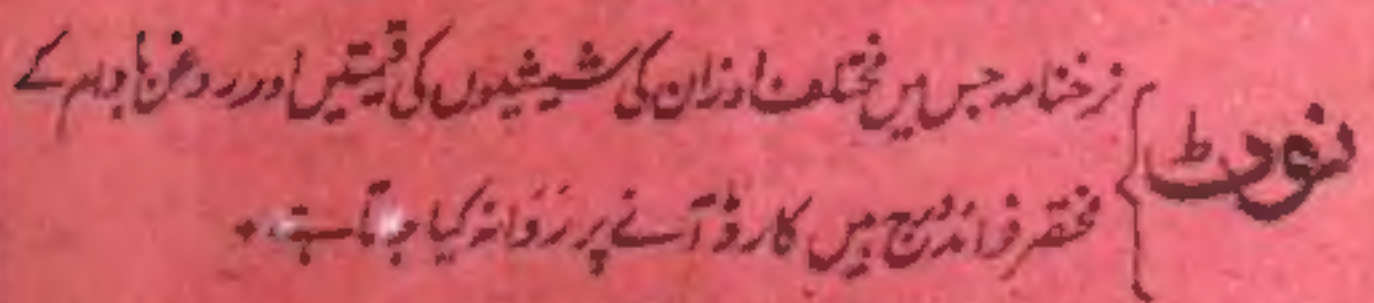 نوٹ
نرخنامہ جس میں مختلف اوزان کی شیشیوں کی قیمتیں اور روغن بادام کے
مختصر فوائد درج ہیں کارڈ آنے پر روانہ کیا جاتا ہے۔